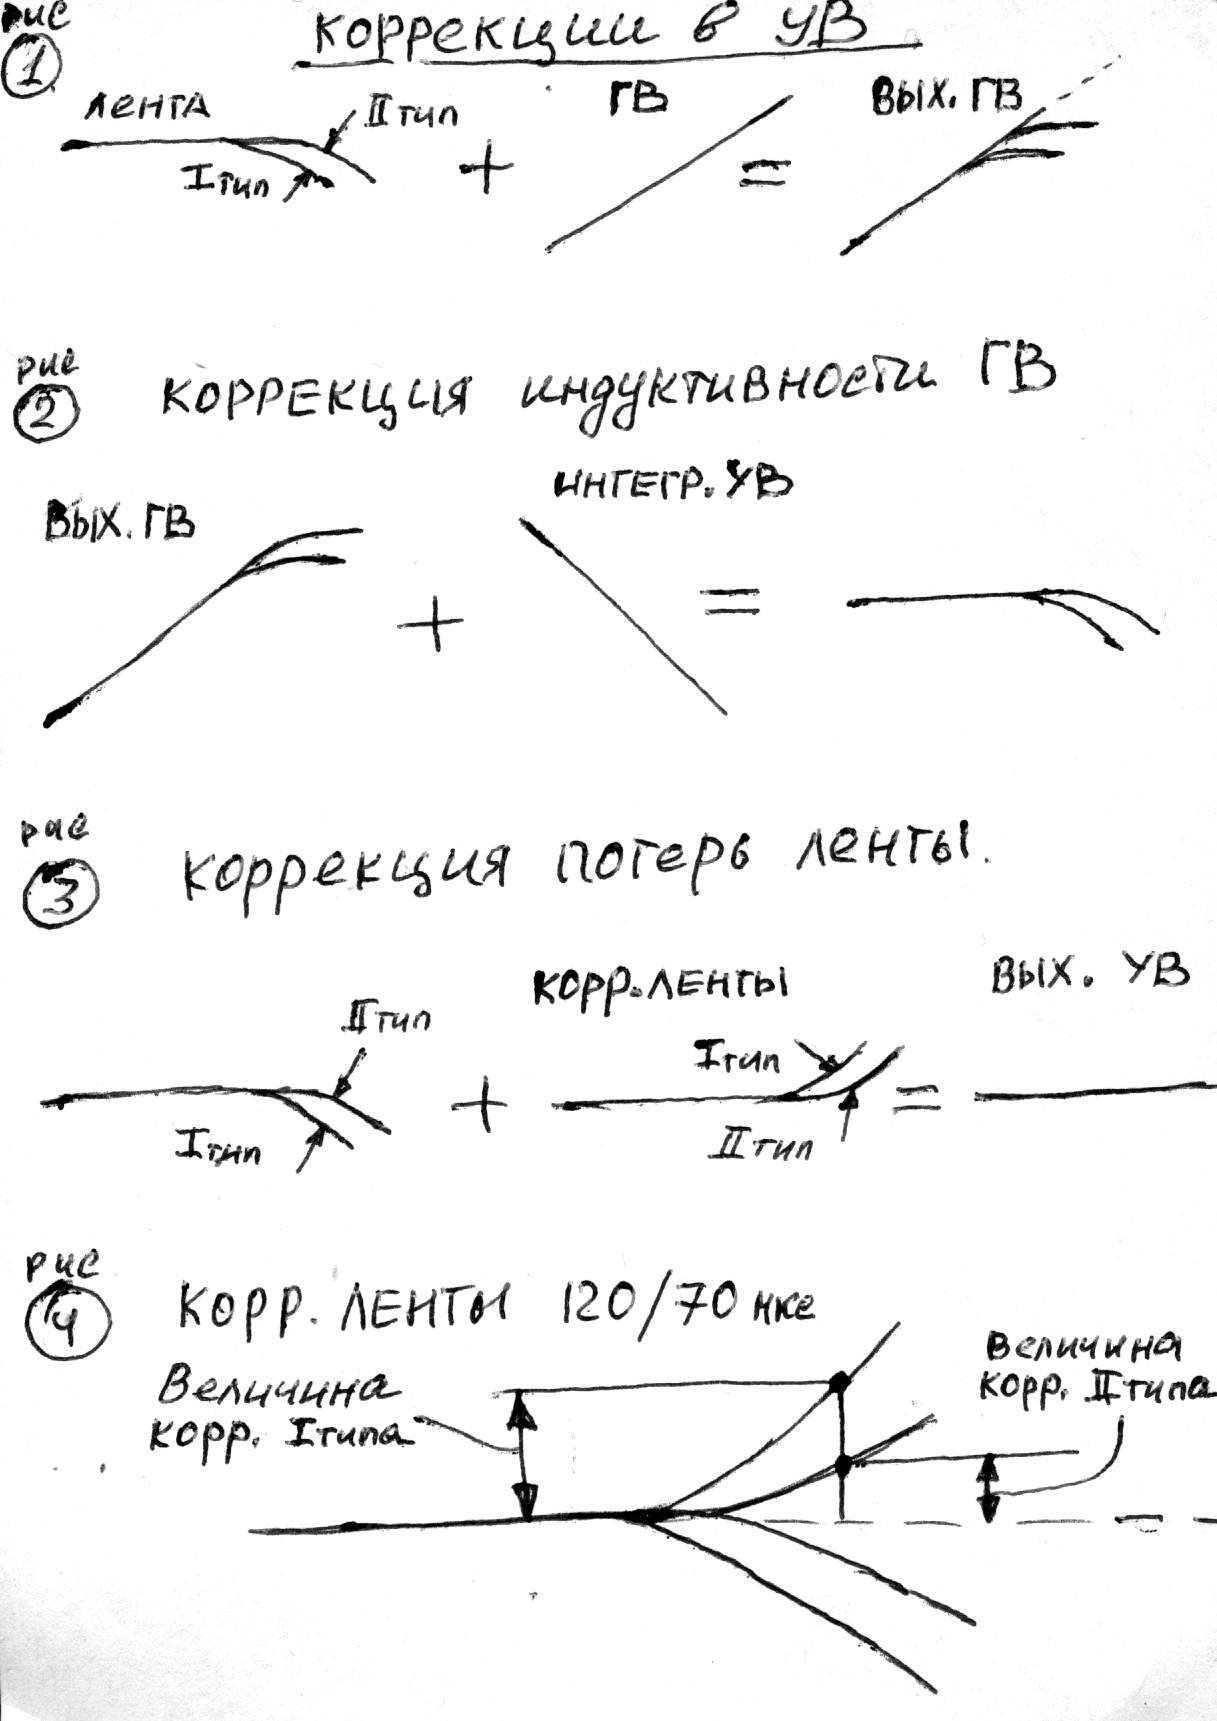 рис
1
коррекции в УВ
ЛЕНТА
II тип
I тип
+
ГВ
=
ВЫХ. ГВ
рис
2
КОРРЕКЦИЯ индуктивности ГВ
ВЫХ. ГВ
+
ИНТЕГР. УВ
=
рис
3
коррекция потерь ленты.
II тип
I тип
+
КОРР. ЛЕНТЫ
I тип
II тип
=
ВЫХ. УВ
рис
4
КОРР. ЛЕНТЫ 120/70 мкс
Величина
корр. I типа
Величина
корр. II типа